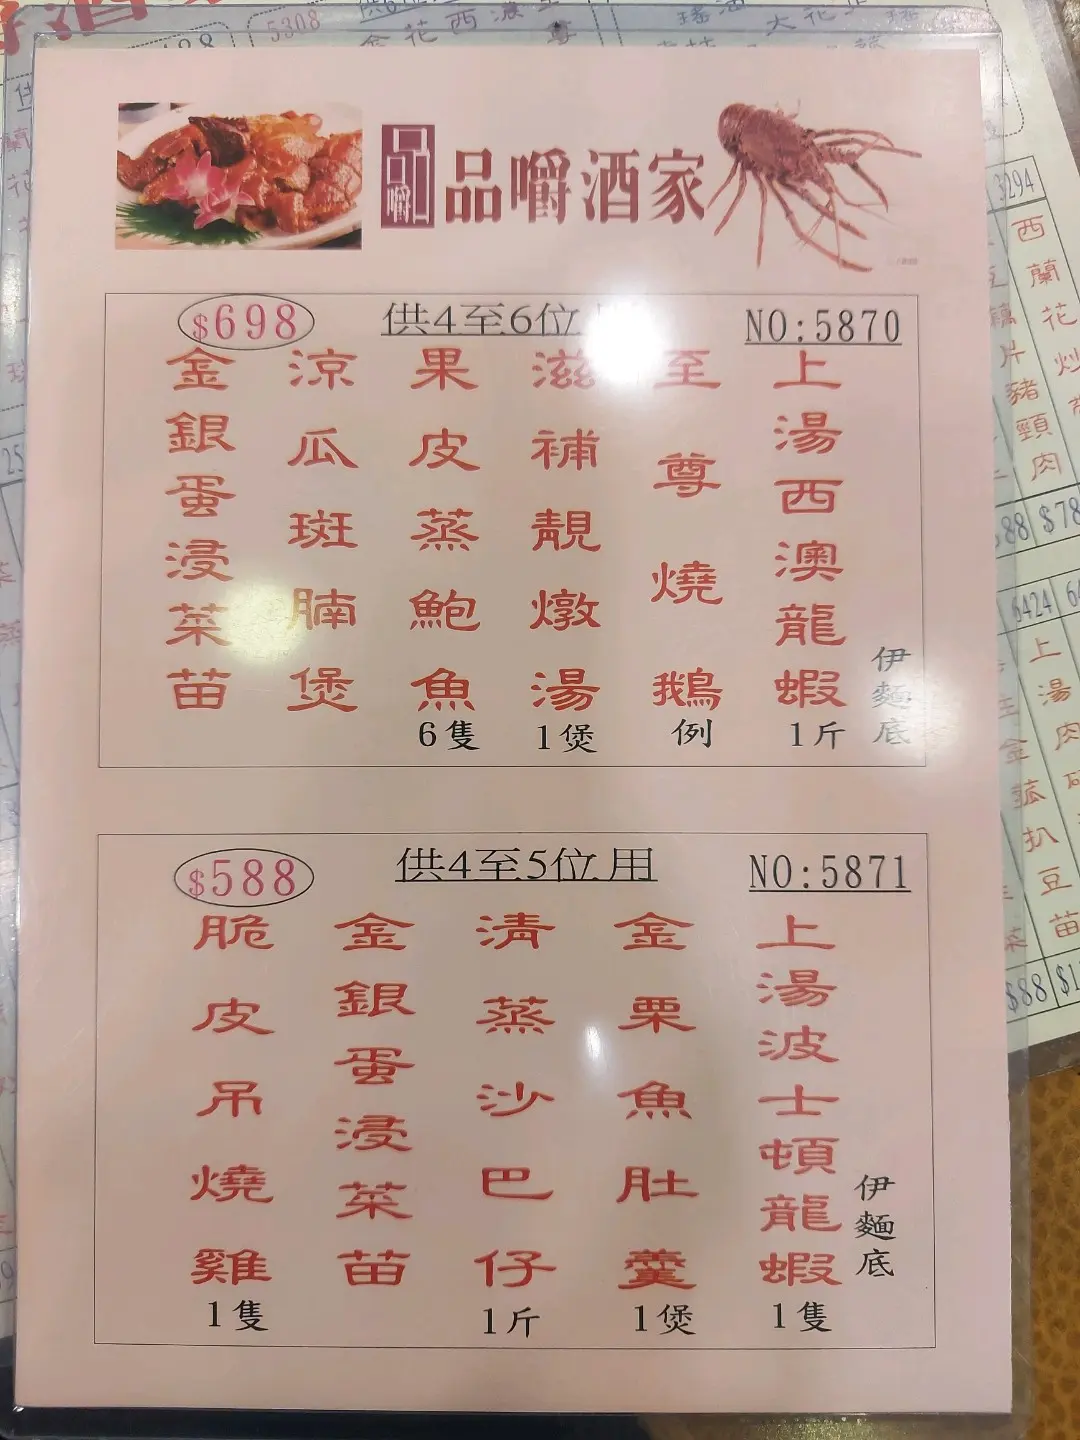 品嚼
品嚼酒家
$698
供4至6位
NO:5870
上湯西澳龍蝦
1斤
伊麵底
至尊燒鵝
例
滋補靚燉湯
1煲
果皮蒸鮑魚
6隻
涼瓜斑腩煲
金銀蛋浸菜苗
$588
供4至5位用
NO:5871
上湯波士頓龍蝦
1隻
伊麵底
金栗魚肚羹
1煲
清蒸沙巴仔
1斤
金銀蛋浸菜苗
脆皮吊燒雞
1隻
5308
3294
西蘭花炒
片豬頸肉
$88
$78
6424
上湯肉
扒豆苗
$88